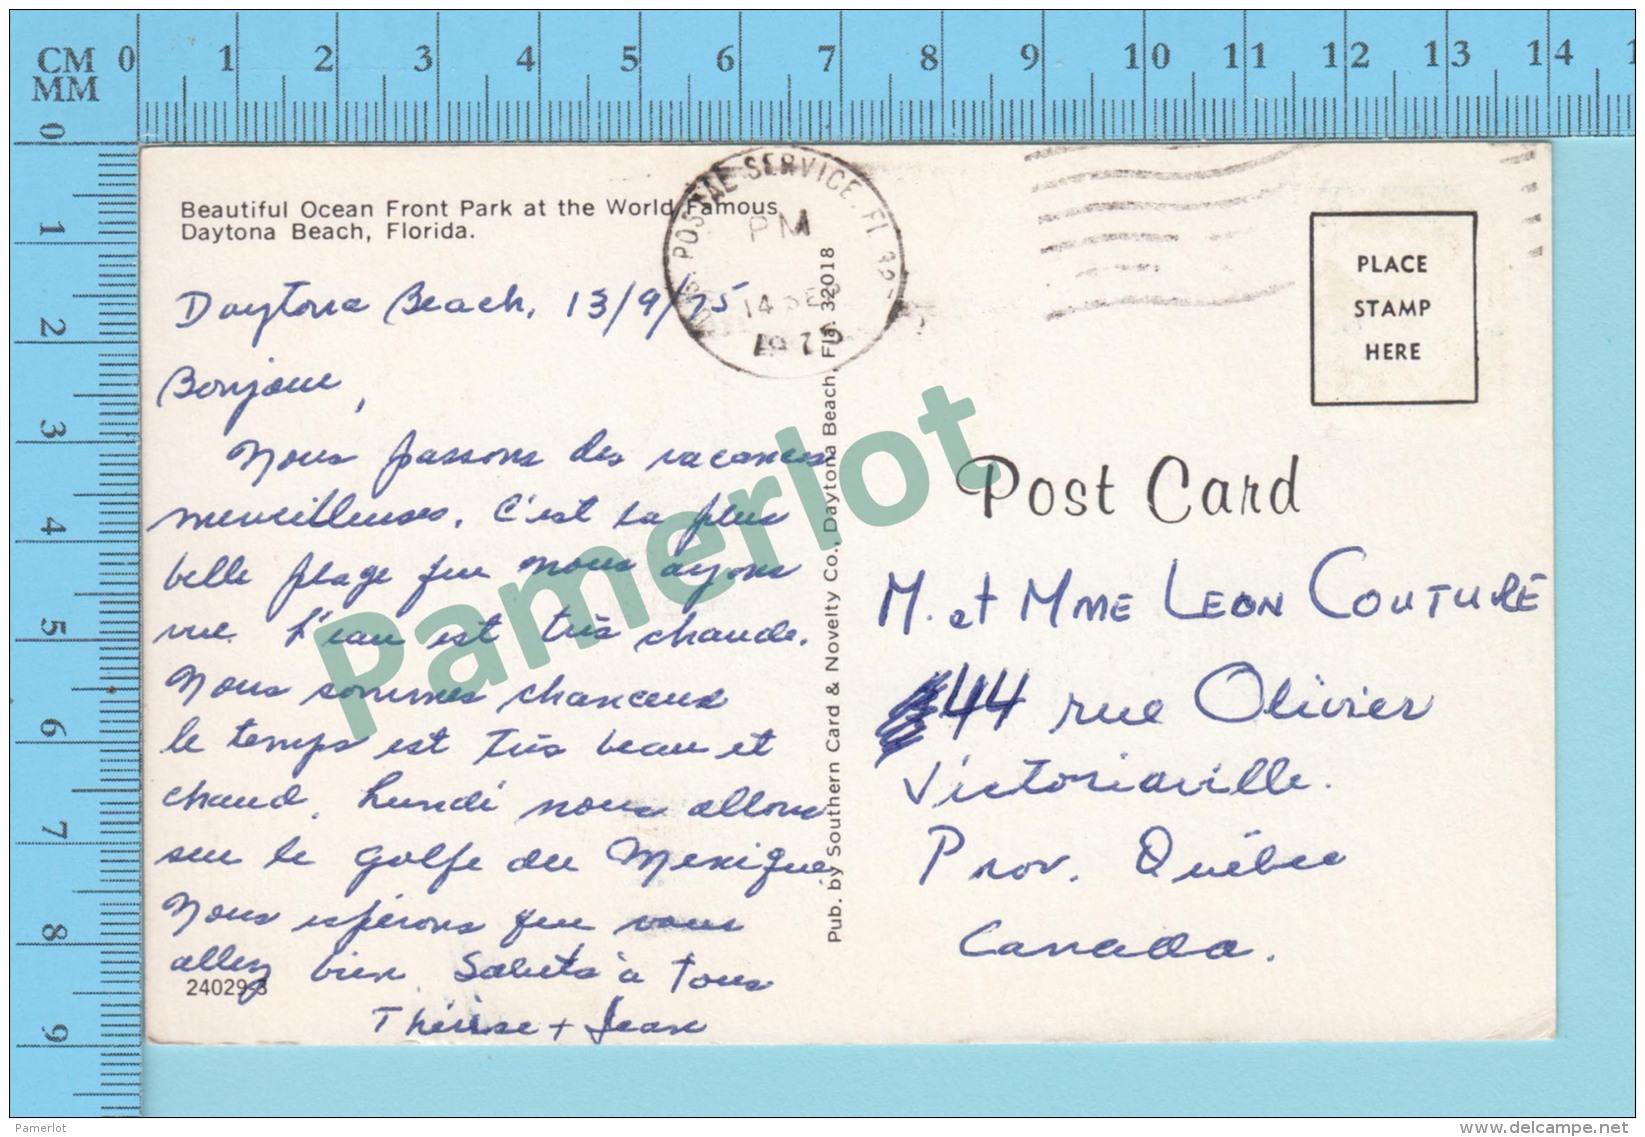 CM 0 1 2 3 4 5 6 7 8 9 10 11 12 13 14
MM
0 1 2 3 4 5 6 7 8 9
Beautiful Ocean Front Park at the World Famous
Daytona Beach, Florida.
POSTAL SERVICE, FL
PM
14 SEP
Daytona Beach, 13/9/75
Bonjour,
Nous passons des vacances
merveilleuses. C'est la plus
belle plage que nous ayons
vue. L'eau est très chaude.
Nous sommes chanceux
le temps est très beau et
chaud. Lundi nous allons
sur le golfe du Mexique
Nous espérons que vous
allez bien. Saluts à Tous
Thérèse + Jean
24029-B
Pub. by Southern Card & Novelty Co., Daytona Beach, Fla. 32018
PLACE
STAMP
HERE
Post Card
M. et Mme LEON COUTURE
44 rue Olivier
Victoriaville.
Prov. Québec
Canada.
Pamerlot
Pamerlot
www.delcampe.net